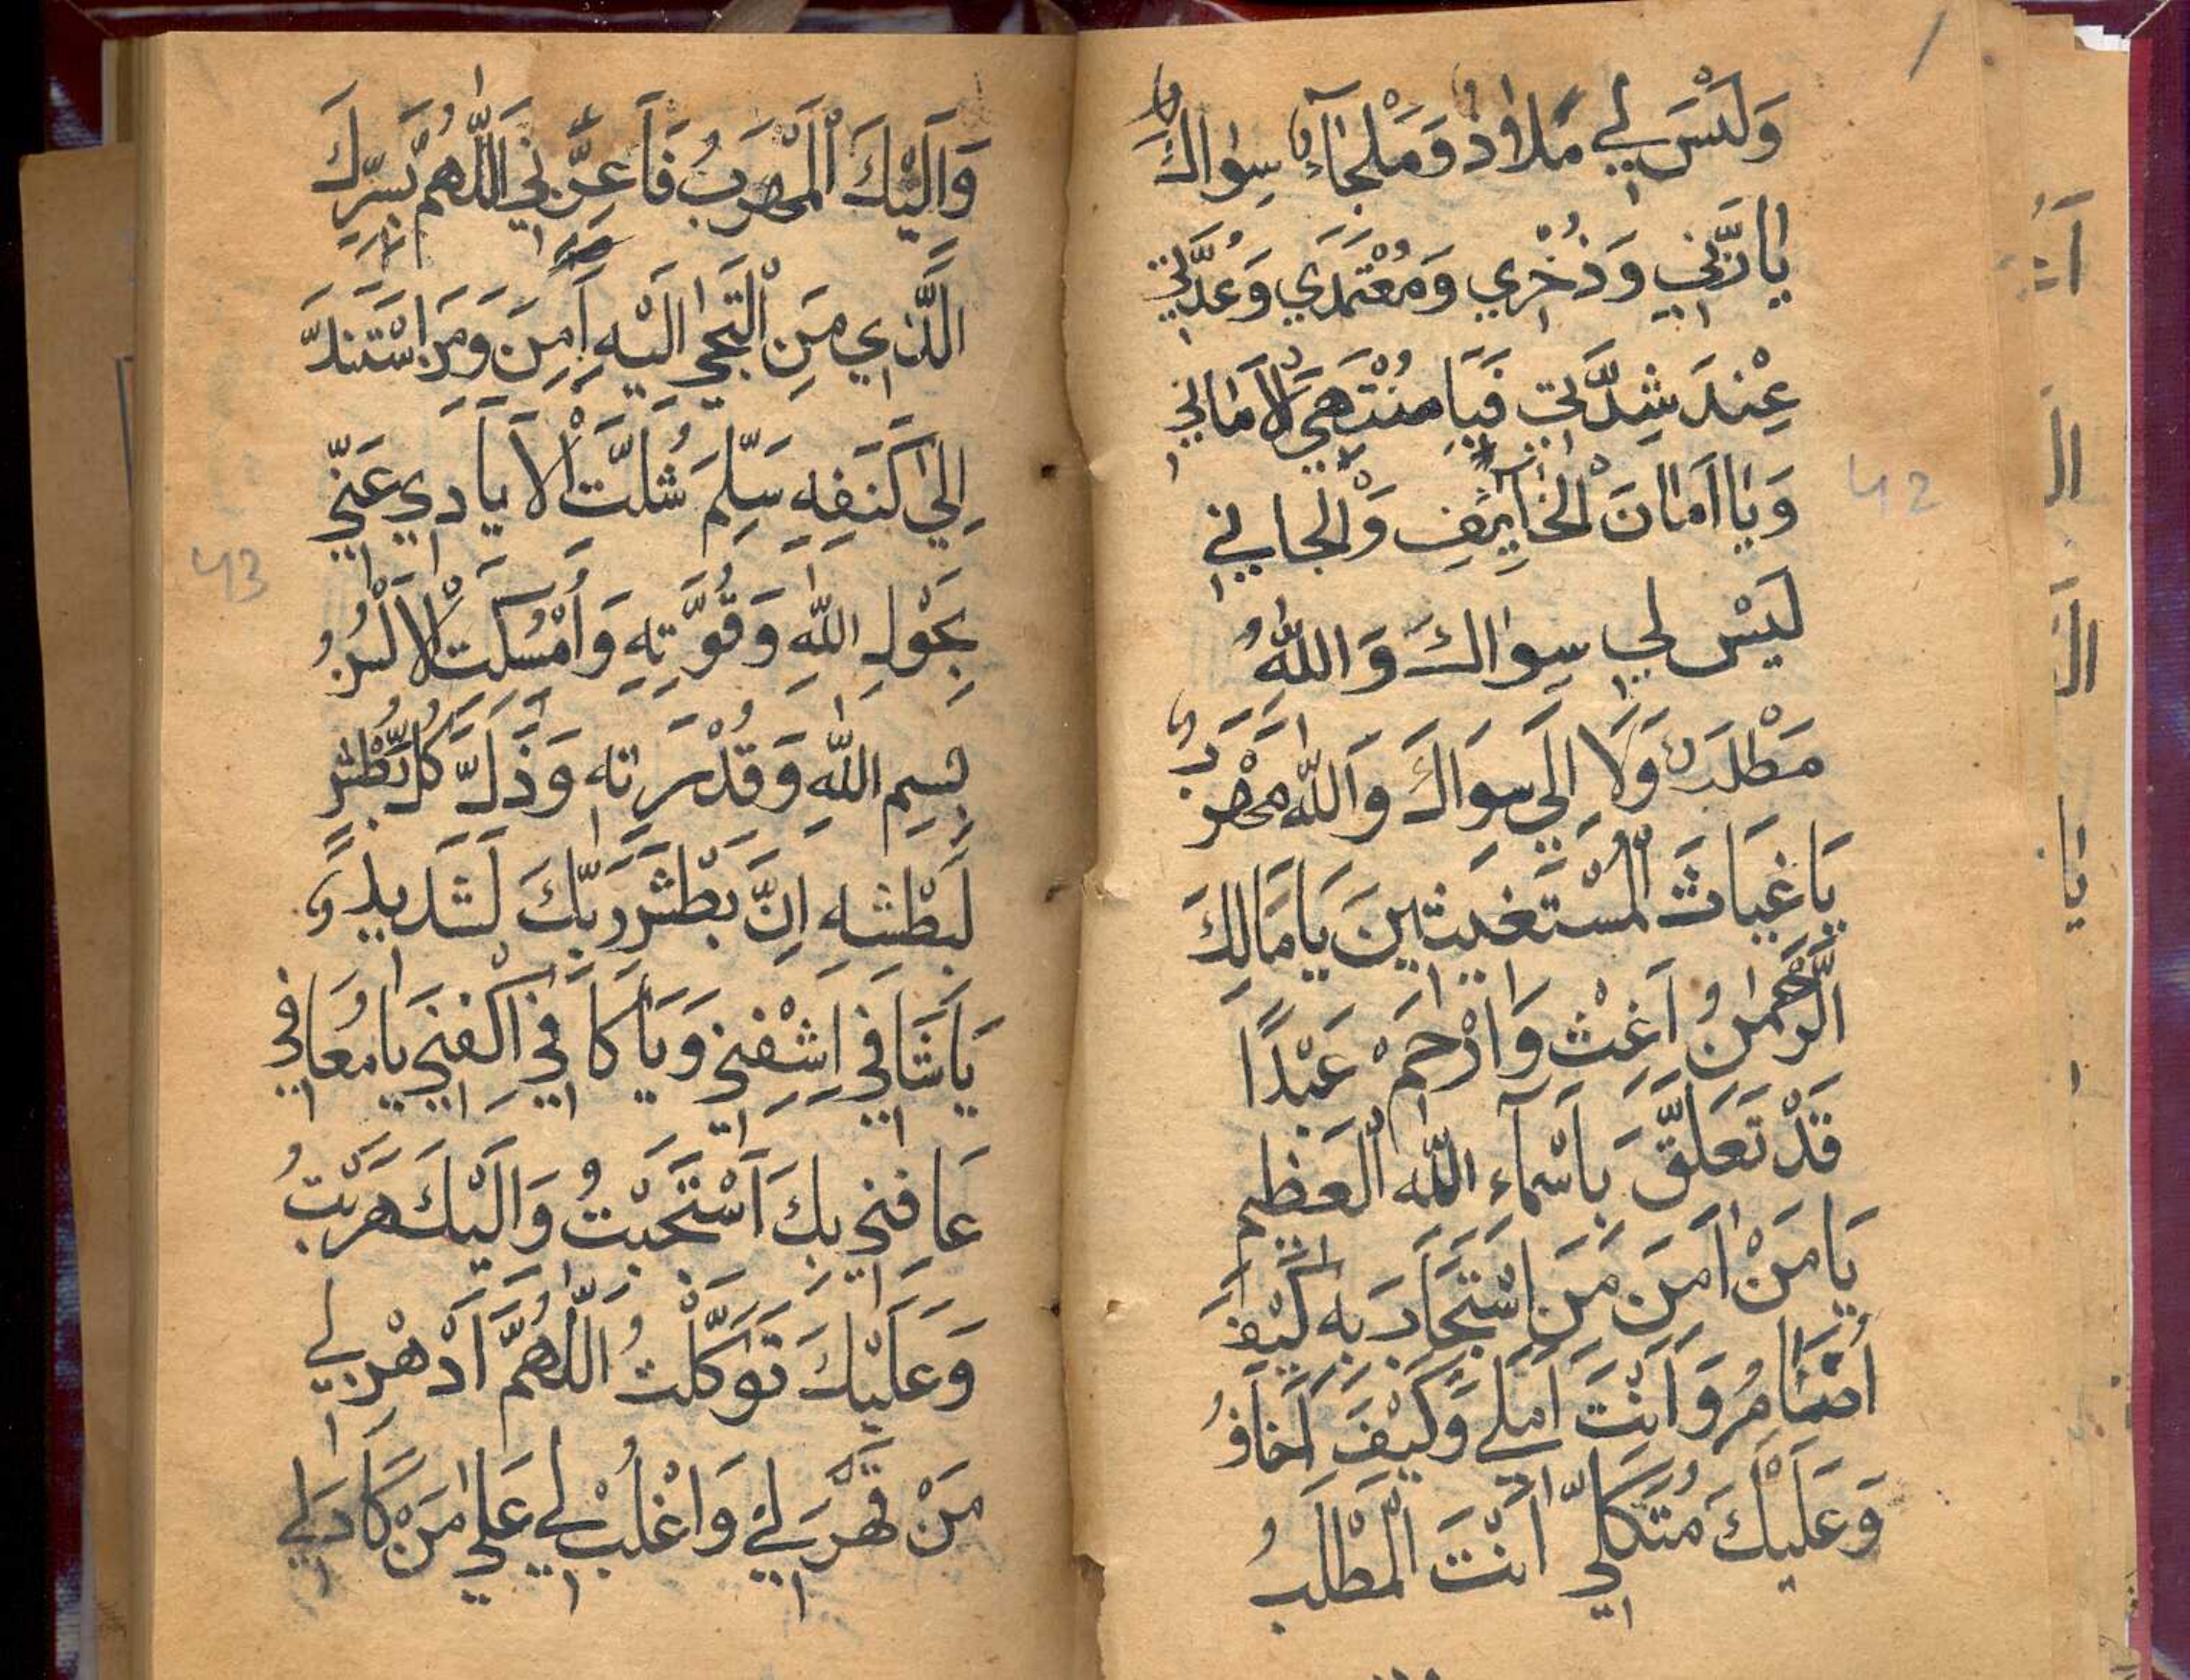 وَلَيْسَ لِي مَلَاذٌ وَمَلْجَاءٌ سِوَاكَ
يَا رَبِّي وَذُخْرِي وَمُعْتَمَدِي وَعُدَّتِي
عِنْدَ شِدَّتِي فَيَا مُنْتَهَى لْاَمَانِي
وَيَا اَمَانَ الْخَايِفِ وَالْجَانِي
لَيْسَ لِي سِوَاكَ وَاللّٰهُ
مَطْلَبٌ وَلَا اِلَى سِوَاكَ وَاللّٰه مَهْرَبٌ
يَا غِيَاثَ الْمُسْتَغِيثِينَ يَا مَالِكَ
الرَّحْمٰنُ اَغِثْ وَارْحَمْ عَبْدًا
قَدْ تَعَلَّقَ بِاَسْمَاءِ اللّٰه الْعَظِيم
يَا مَنْ اٰمَنَ مَنِ اسْتَجَارَ بِهِ كَيْفَ
اُضَامُ وَاَنْتَ اَمَلِي وَكَيْفَ اَخَافُ
وَعَلَيْكَ مُتَّكَلِي اَنْتَ الْمَطْلَبُ
42
وَاِلَيْكَ الْمَهْرَبُ فَاَعِزَّنِي اللّٰهُمَّ بِسِرِّكَ
الَّذِي مَنِ الْتَجٰى اِلَيْهِ اَمِنَ وَمَنِ اسْتَنَدَ
اِلٰى كَنَفِهِ سَلِمَ شُلَّتْ الْاَيَادِي عَنِّي
بِحَوْلِ اللّٰهِ وَقُوَّتِهِ وَاُمْسِكَتْ لْاَلْسُنُ
بِسْمِ اللّٰهِ وَقُدْرَتِه وَذَلَّ كُلُّ بَطْشٍ
لِبَطْشِهِ اِنَّ بَطْشَ رَبِّكَ لَشَدِيدٌ
يَا شَافِي اِشْفِنِي وَيَا كَافِي اكْفِنِي يَا مُعَافِي
عَافِنِي بِكَ اسْتَحَبْتُ وَاِلَيْكَ هَرَبْتُ
وَعَلَيْكَ تَوَكَّلْتُ اللّٰهُمَّ اَدْهِنْ لِي
مَنْ قَهَرَ لِي وَاغْلُبْ لِي عَلٰى مَنْ كَادَ لِي
43